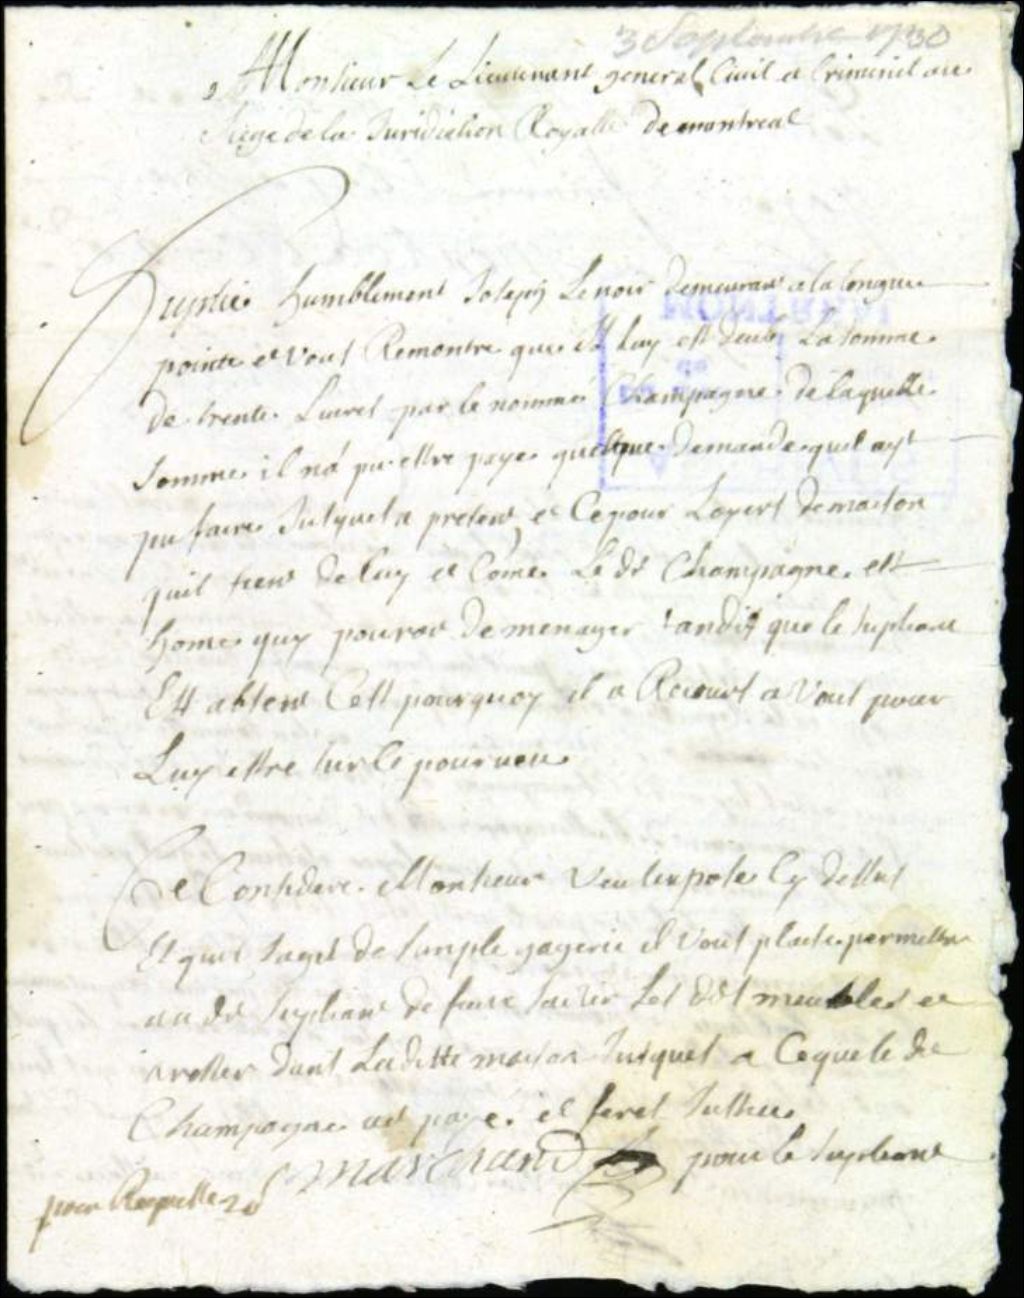 3 Septembre 1730
A Monsieur Le Lieutenant general Civil et Criminel au
Siege de la Juridiction Royalle de montreal
Suplie humblement Joseph Lenoir demeurant a la longue
pointe et vous Remontre que il luy est deub La somme
de trente Livres par le nommé Champagne de laquelle
somme il na pu estre payé quelque demande quil ayt
pu faire Jusquel a present et Cepour Loyers demaison
quil tient de luy et Come Le dt Champagne est
home quy pouroit demenager tandis que le supliant
Est absent Cest pourquoy il a Recours a Vous pour
Luy estre sur Ce pourveu
Ce Considere Monsieur Veu lexposé Cy dessus
Et quil sagit de simple gagerie il Vous plaise permettre
au dt supliant de faire saisir Les dits meubles et
arrester dans Laditte maison Jusques a Ceque le dt
Champagne ait payé et ferez Justice
marchand pour le supliant
pour Requeste 20s
MONTREAL